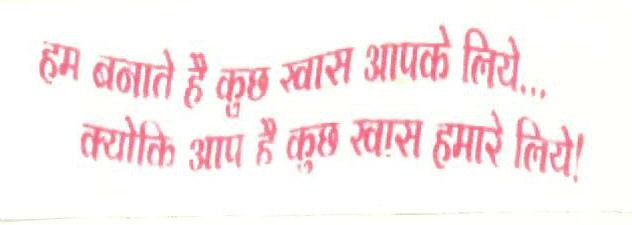 हम बनाते है कुछ खास आपके लिये...
क्योकि आप है कुछ खा़स हमारे लिये!